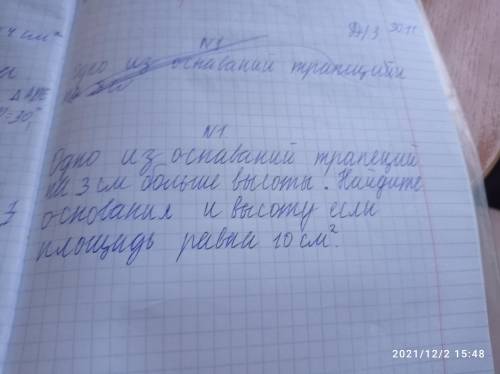 Д/З 30.11
4 см²
N1
одно из оснаваний трапецийи
на 3 см
△ ABE
=30°,
N1
Одно из оснаваний трапеций
на 3 см больше высоты. Найдите
основания и высоту если
площадь равна 10 см².
2021/12/2 15:48